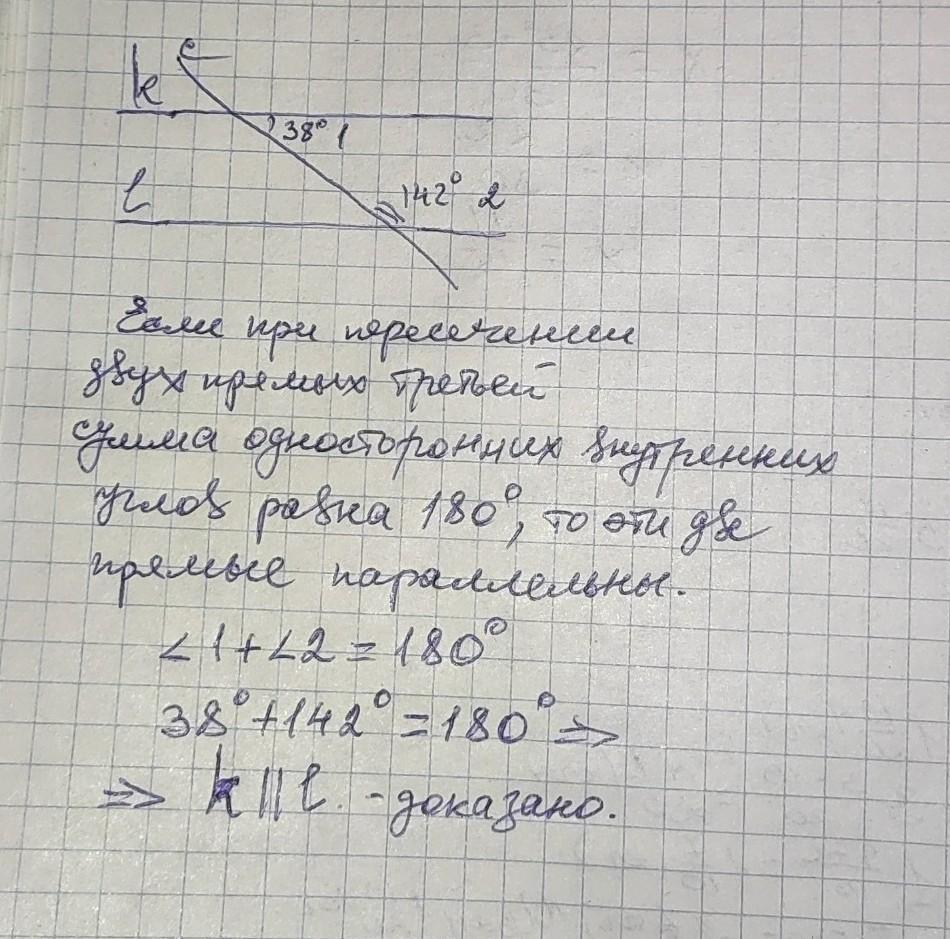 k c
38° 1
l 142° 2
Если при пересечении
двух прямых третьей
сумма односторонних внутренних
углов равна 180°, то эти две
прямые параллельны.
∠1+∠2=180°
38°+142°=180° ⇒
⇒ k||l. - доказано.